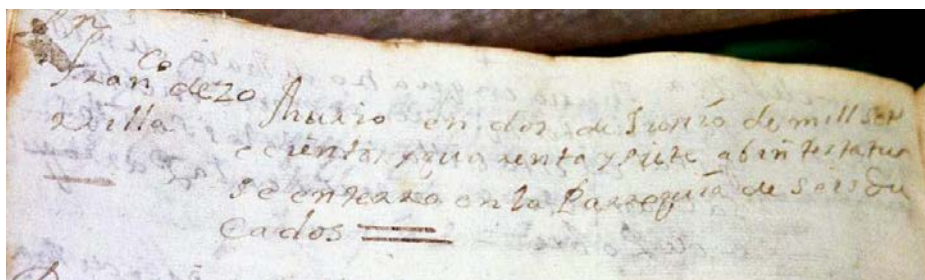 Franco dezo
rilla
Murio en dos de Junio de mill set
ecientos y quarenta y siete abintestatus
se enterro en la Parroquia de seis du
cados